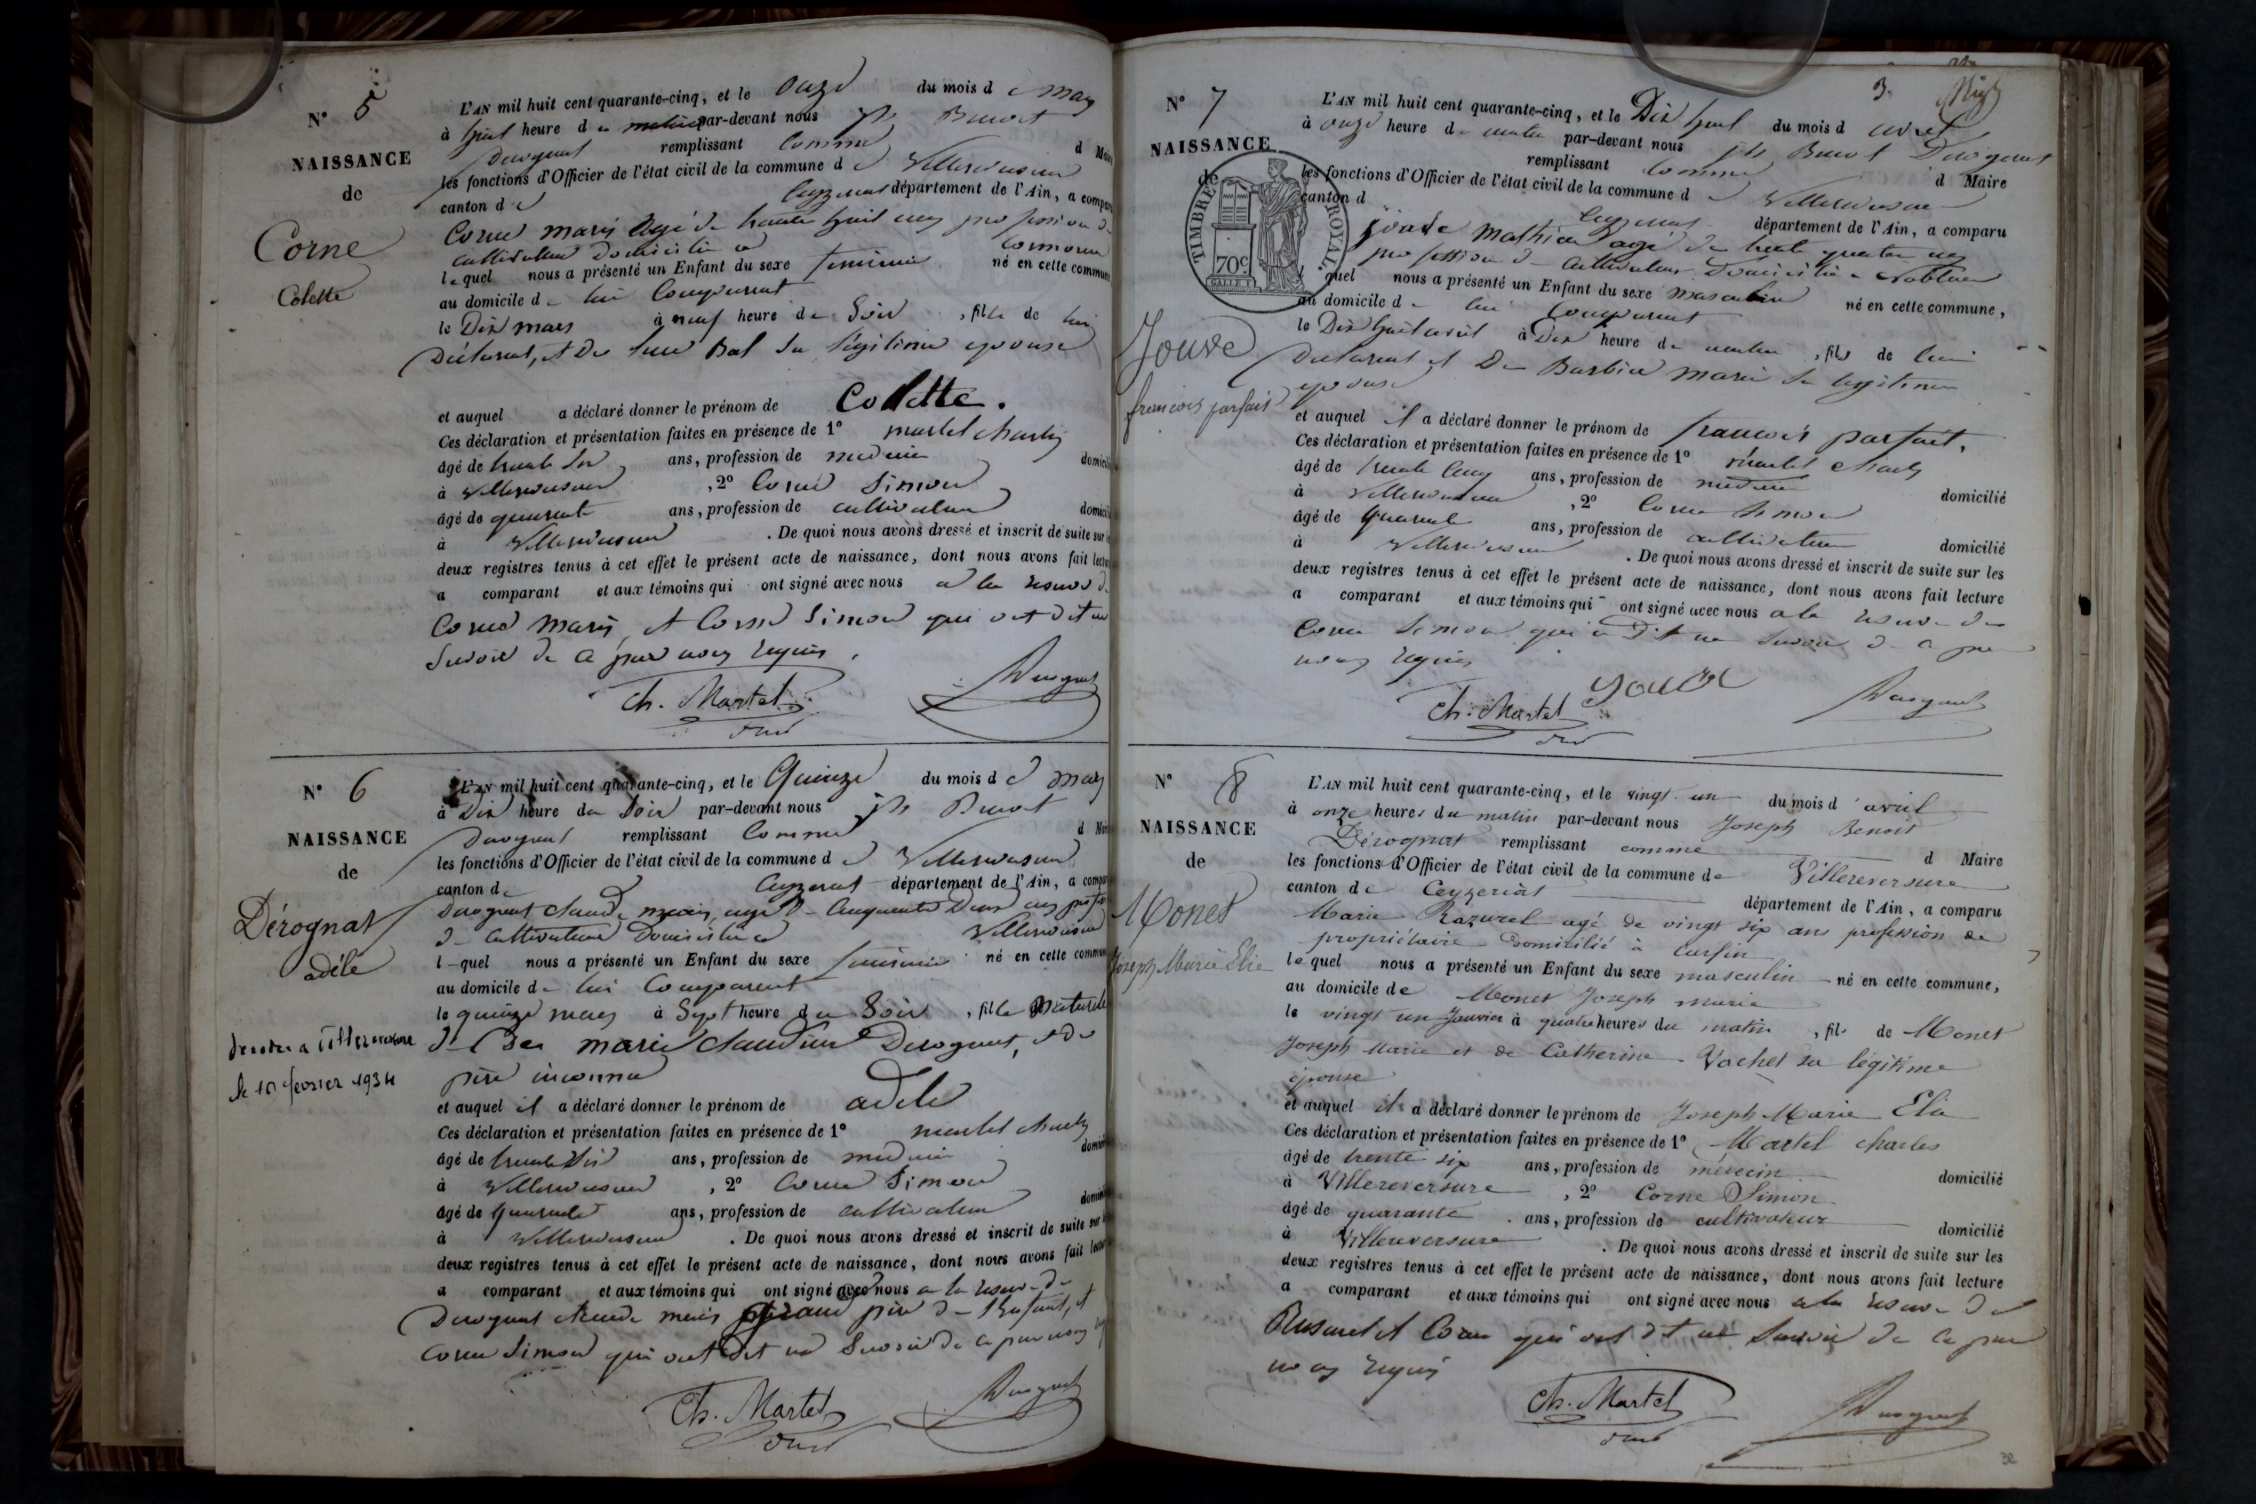 N° 5
NAISSANCE
de
Corne
Colette
L'AN mil huit cent quarante-cinq, et le onze du mois de mars
à huit heure du matin par-devant nous jh Benoit
Derognat remplissant comme d Maire
les fonctions d'Officier de l'état civil de la commune de Villereversure
canton de Ceyzeriat département de l'Ain, a comparu
Corne marie agé de trente huit ans profession de
cultivateur domicilié a
lequel nous a présenté un Enfant du sexe feminin né en cette commune
au domicile de lui Comparant
le Dix mars à neuf heure du Soir, fille de lui
Déclarant, et de Bal Sa légitime epouse
et auquel a déclaré donner le prénom de Colette.
Ces déclaration et présentation faites en présence de 1° martel charles
âgé de trente six ans, profession de medecin domicilié
à Villereversure, 2° Corne Simon
âgé de quarante ans, profession de cultivateur domicilié
à Villereversure. De quoi nous avons dressé et inscrit de suite sur les
deux registres tenus à cet effet le présent acte de naissance, dont nous avons fait lecture
a comparant et aux témoins qui ont signé avec nous a la reserve de
Corne marie, et Corne Simon qui ont dit ne
Savoir de ce par nous requis.
Ch. Martel
Derognat
N° 6
NAISSANCE
de
Dérognat
adèle
le 10 fevrier 1934
L'AN mil huit cent quarante-cinq, et le Quinze du mois de mars
à Dix heure du Soir par-devant nous jh Benoit
Derognat remplissant comme d Maire
les fonctions d'Officier de l'état civil de la commune de Villereversure
canton de Ceyzeriat département de l'Ain, a comparu
Derognat claude marie, agé de Cinquante Deux ans profession
de cultivateur domicilié a Villereversure
lequel nous a présenté un Enfant du sexe feminin né en cette commune
au domicile de lui Comparant
le quinze mars à Sept heure du Soir, fille Naturelle
de marie claudine Derognat, et de
père inconnu
et auquel il a déclaré donner le prénom de adele
Ces déclaration et présentation faites en présence de 1° martel charles
âgé de trente six ans, profession de medecin domicilié
à Villereversure, 2° Corne Simon
âgé de quarante ans, profession de cultivateur domicilié
à Villereversure. De quoi nous avons dressé et inscrit de suite sur les
deux registres tenus à cet effet le présent acte de naissance, dont nous avons fait lecture
a comparant et aux témoins qui ont signé avec nous a la reserve de
Derognat claude marie grand père de l'Enfant, et
Corne Simon qui ont dit ne Savoir de ce par nous
Ch. Martel
Derognat
3
N° 7
NAISSANCE
de
TIMBRE ROYAL.
70c
Jouve
francois parfait
L'AN mil huit cent quarante-cinq, et le Dix huit du mois d avril
à onze heure du matin par-devant nous jh Benoit Derognat
remplissant comme d Maire
les fonctions d'Officier de l'état civil de la commune de Villereversure
canton d Ceyzeriat département de l'Ain, a comparu
jouve Mathieu agé de trente quatre ans
profession de cultivateur Domicilié a Noblens
quel nous a présenté un Enfant du sexe masculin né en cette commune,
au domicile de lui Comparant
le Dix huit avril à Dix heure du matin, fils de lui
Déclarant et De Barbier marie Sa legitime
epouse
et auquel il a déclaré donner le prénom de francois parfait.
Ces déclaration et présentation faites en présence de 1° martel charles
âgé de trente Cinq ans, profession de medecin domicilié
à Villereversure, 2° Corne Simon
âgé de Quarante ans, profession de cultivateur domicilié
à Villereversure. De quoi nous avons dressé et inscrit de suite sur les
deux registres tenus à cet effet le présent acte de naissance, dont nous avons fait lecture
a comparant et aux témoins qui ont signé avec nous a la reserve de
Corne Simon qui a Dit ne Savoir de ce par
nous requis
Jouve
Ch. Martel
Derognat
N° 8
NAISSANCE
de
Monet
Joseph Marie Elie
L'AN mil huit cent quarante-cinq, et le vingt un du mois d'avril
à onze heures du matin par-devant nous Joseph Benoit
Dérognat remplissant comme d Maire
les fonctions d'Officier de l'état civil de la commune de Villereversure
canton de Ceyzeriat département de l'Ain, a comparu
Marie Razurel agé de vingt six ans profession de
propriétaire domicilié à
lequel nous a présenté un Enfant du sexe masculin né en cette commune,
au domicile de Monet Joseph marie
le vingt un Janvier à quatre heures du matin, fils de Monet
Joseph Marie et de Catherine Vachet sa légitime
épouse
et auquel il a déclaré donner le prénom de Joseph Marie Elie
Ces déclaration et présentation faites en présence de 1° Martel charles
âgé de trente six ans, profession de médecin domicilié
à Villereversure, 2° Corne Simon
âgé de quarante ans, profession de cultivateur domicilié
à Villereversure. De quoi nous avons dressé et inscrit de suite sur les
deux registres tenus à cet effet le présent acte de naissance, dont nous avons fait lecture
a comparant et aux témoins qui ont signé avec nous a la reserve de
et Corne qui ont dit ne Savoir de ce par
nous requis
Ch. Martel
Derognat
32